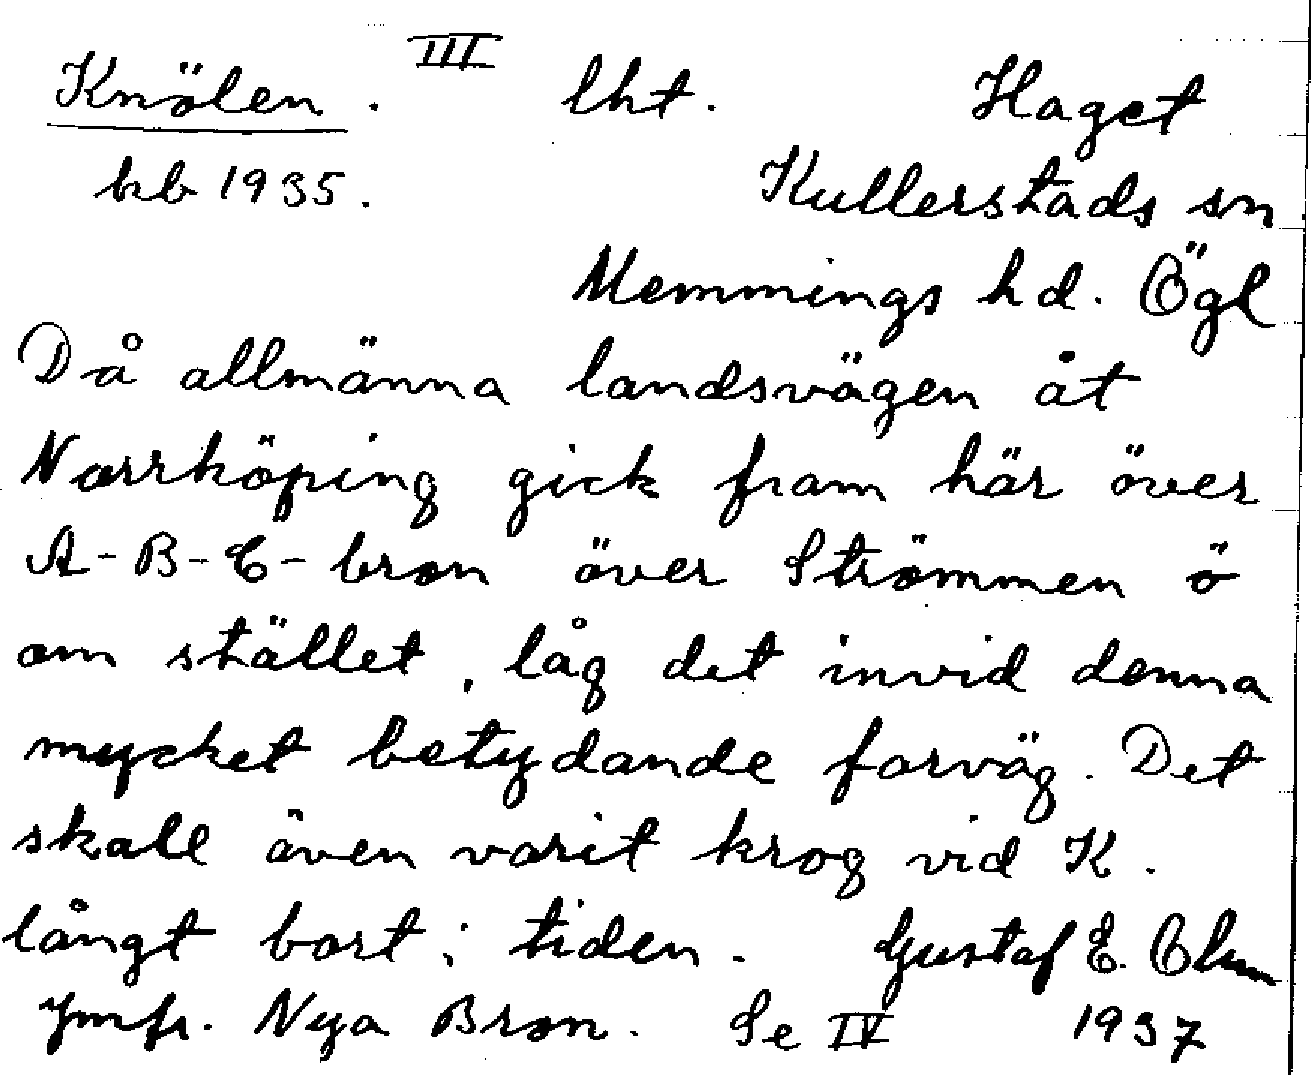 Knölen. III lht. Haget
kb 1935. Kullerstads sn
Memmings hd. Ögl
Då allmänna landsvägen åt
Norrköping gick fram här över
A-B-C-bron över Strömmen ö
om stället, låg det invid denna
mycket betydande farväg. Det
skall även varit krog vid K.
långt bort i tiden. Gustaf E.
Jmfr. Nya Bron. Se IV 1937